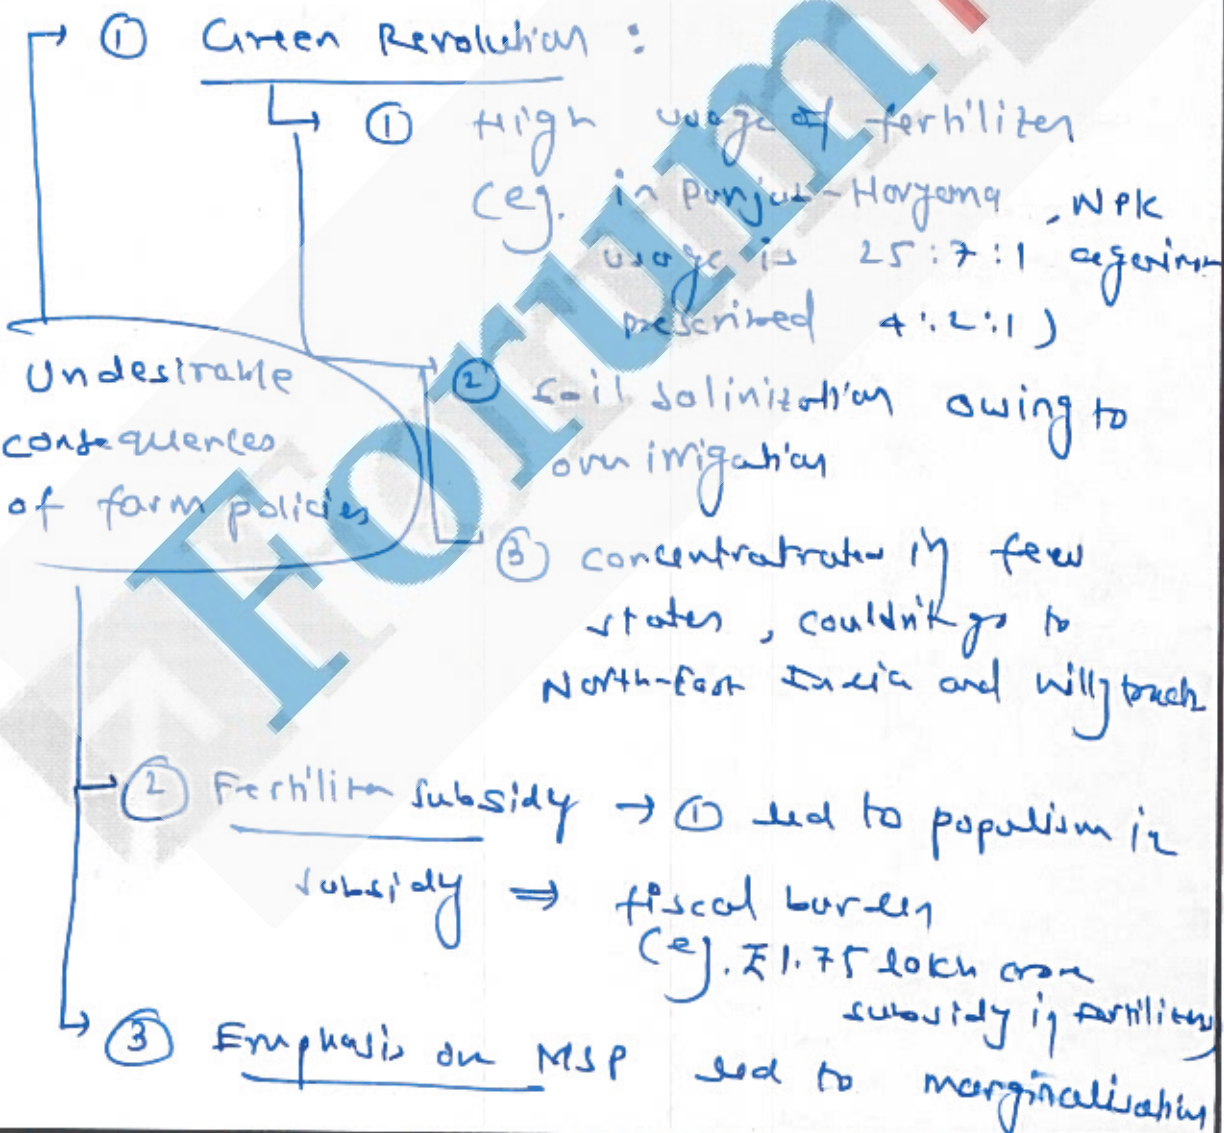 ① Green Revolution :
① High usage of fertilizer
(eg. in Punjab-Haryana, NPK
usage is 25:7:1 against
prescribed 4:2:1)
Undesirable
consequences
of farm policies
② Soil salinization owing to
over irrigation
③ concentratrated in few
states, couldn't go to
North-East India and hilly track
② Fertilizer subsidy → ① led to populism in
subsidy ⇒ fiscal burden
(eg. ₹1.75 lakh crore
subsidy in fertilizers)
③ Emphasis on MSP led to marginalisation
Forum